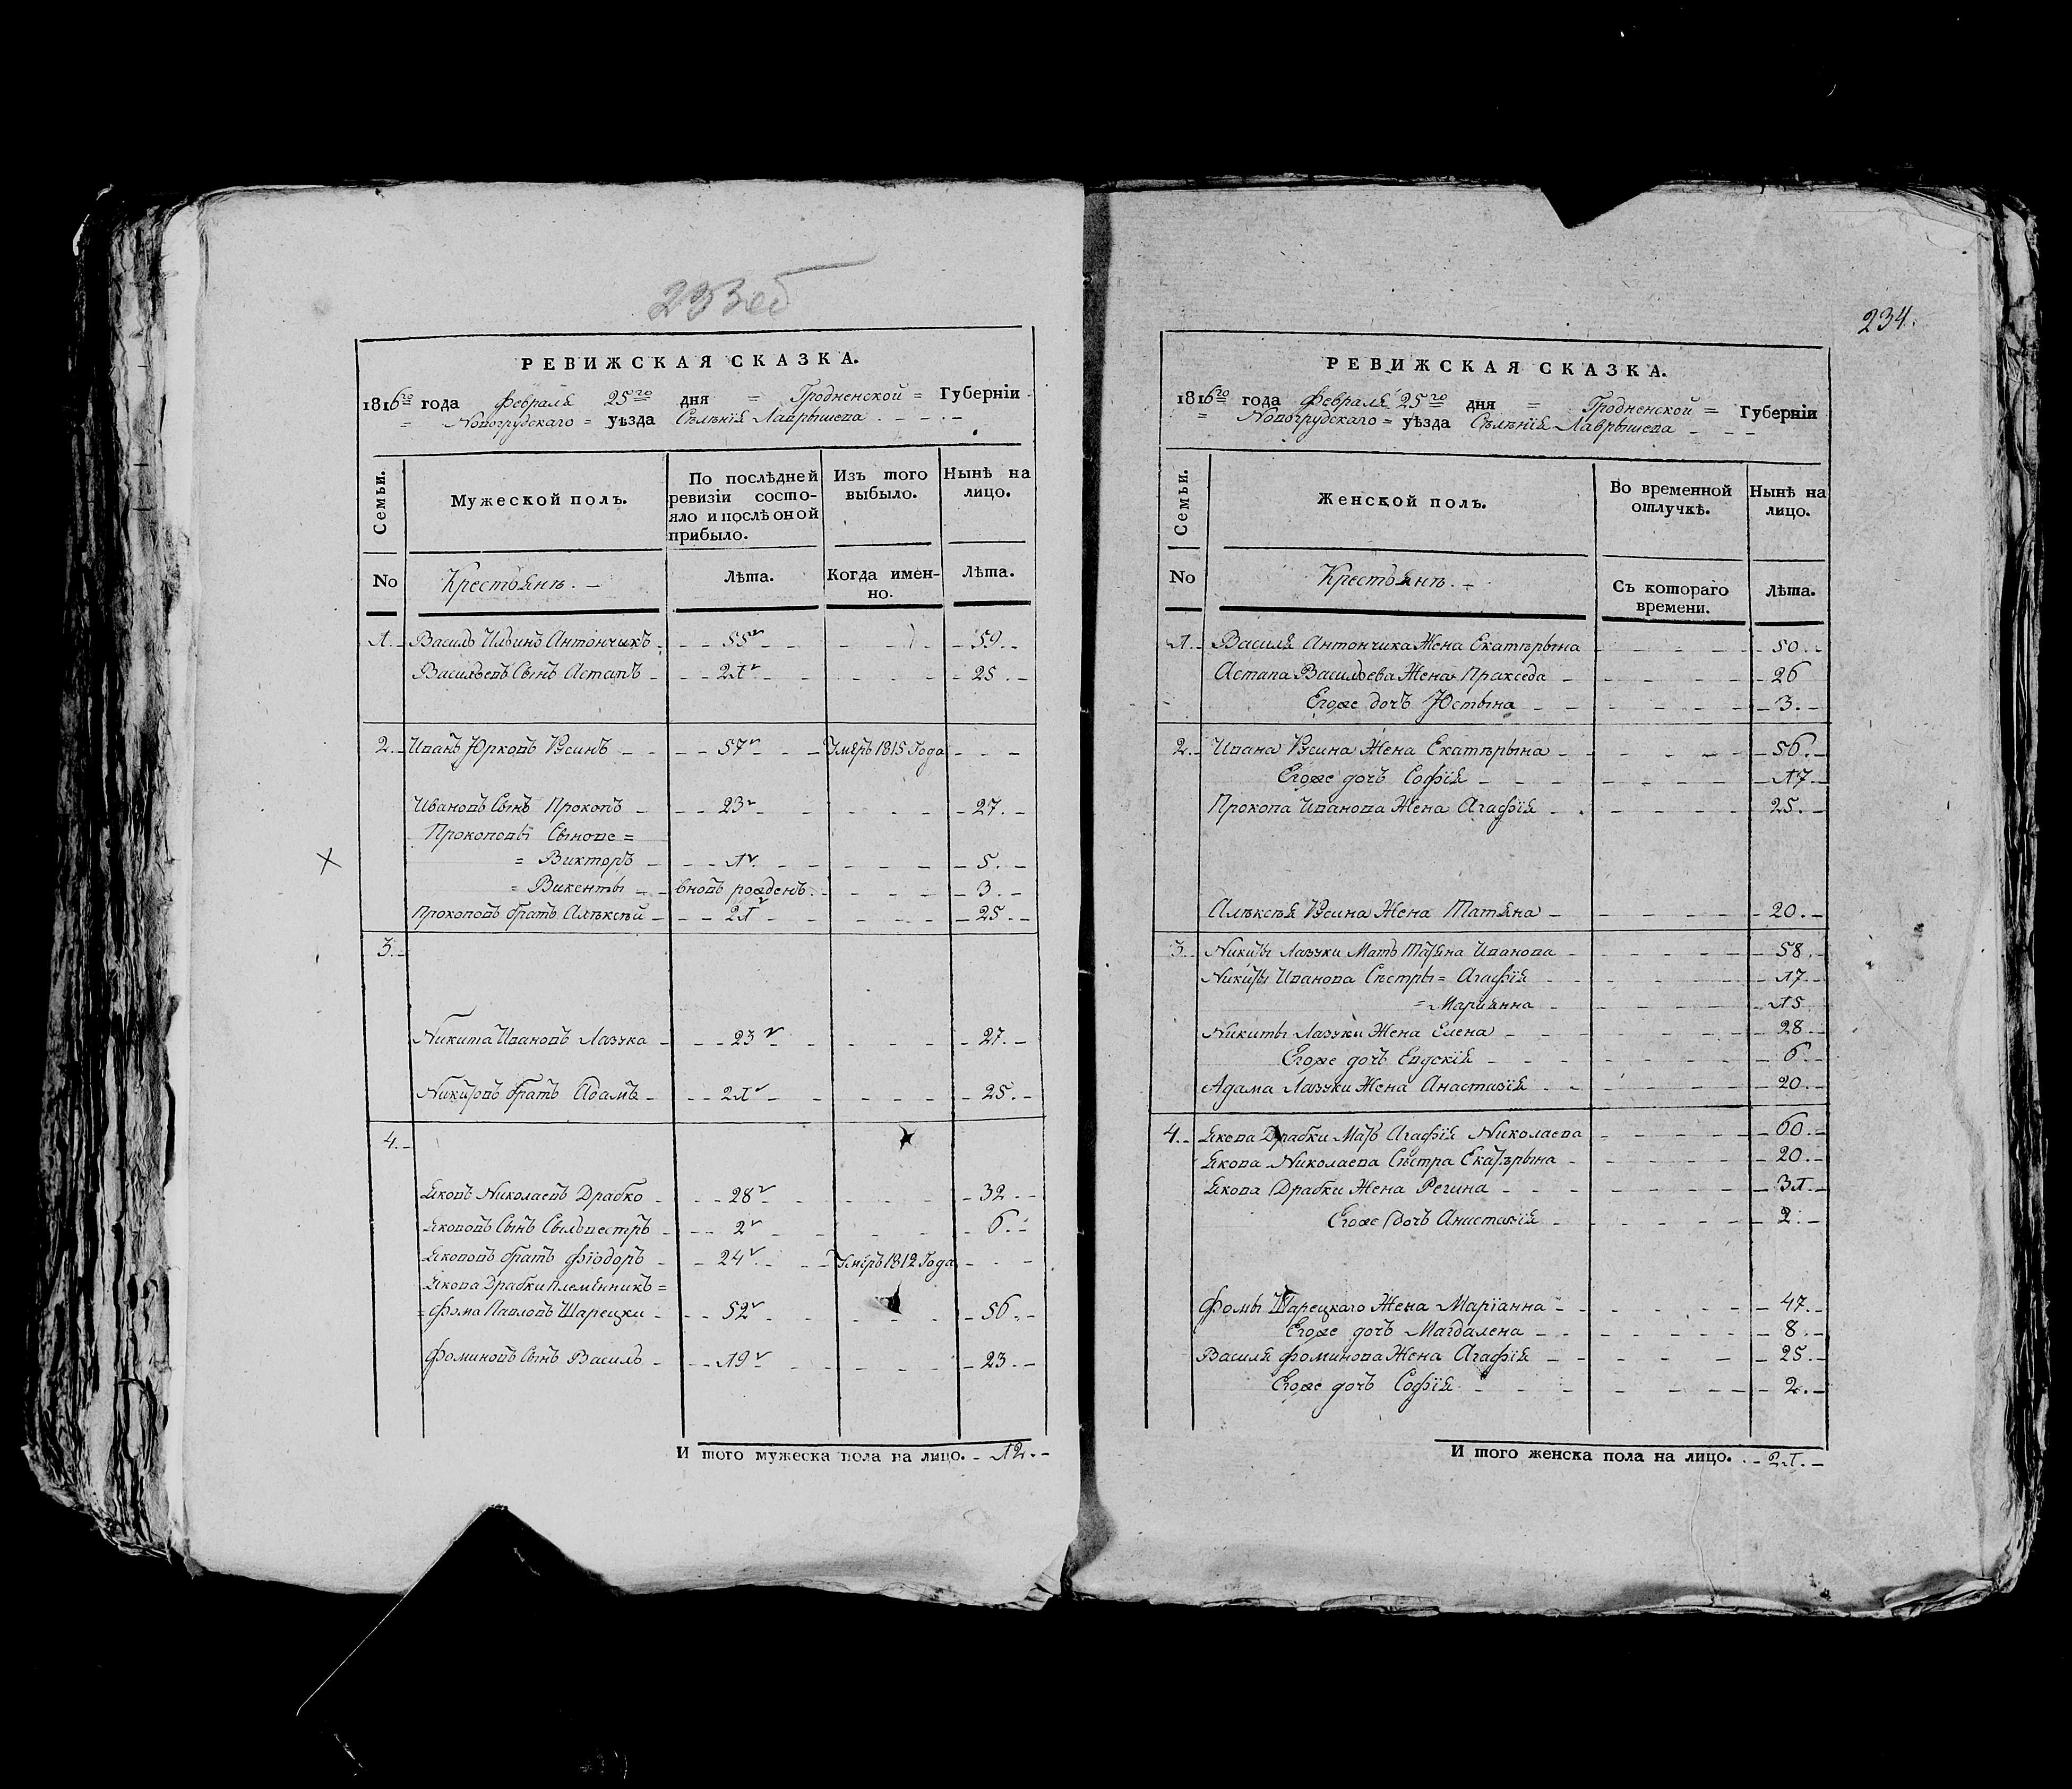 233об
РЕВИЖСКАЯ СКАЗКА.
1816го года Февраля 25го дня = Гродненской = Губерніи
= Новогрудскаго = уѣзда Сѣлѣнія Лаврышева
Семьи.
Мужеской полъ.
По послѣдней ревизіи состояло и послѣ оной прибыло.
Изъ того выбыло.
Нынѣ на лицо.
No
Крестьянѣ. —
Лѣта.
Когда именно.
Лѣта.
1. Василь Ильинъ Антончикъ 55 59
Васильевъ Сынъ Астапъ 21 25
2. Иванъ Юрковъ Русинъ 57 Умеръ 1815 Года
Ивановъ Сынъ Прокопъ 23 27
Прокоповы Сынове =
= Викторъ 1 5
= Викенты вновь рожденъ 3
Прокоповъ братъ Алѣксѣй 21 25
3.
Никита Ивановъ Лазука 23 27
Никитовъ братъ Адамъ 21 25
4.
Яковъ Николаевъ Драбко 28 32
Якововъ Сынъ Сыльвестръ 2 6
Якововъ братъ Фіодоръ 24 Умеръ 1812 Года
Якова Драбки Племянникъ =
= Фома Павловъ Шарецки 52 56
Фоминовъ Сынъ Василь 19 23
И того мужеска пола на лицо. 12
234.
РЕВИЖСКАЯ СКАЗКА.
1816го года Февраля 25го дня = Гродненской = Губерніи
= Новогрудскаго = уѣзда Сѣлѣнія Лаврышева
Семьи.
Женской полъ.
Во временной отлучкѣ.
Нынѣ на лицо.
No
Крестьянѣ. —
Съ котораго времени.
Лѣта.
1. Василя Антончика Жена Екатѣрына 50
Астапа Васильева Жена Пракседа 26
Егоже дочъ Юстына 3
2. Ивана Русина Жена Екатѣрына 56
Егоже дочъ Софія 17
Прокопа Иванова Жена Агафія 25
Алѣксѣя Русина Жена Татяна 20
3. Никиты Лазуки Мать Татяна Иванова 58
Никиты Иванова Сѣстры = Агафія 17
= Марианна 15
Никиты Лазуки Жена Елена 28
Егоже дочъ Евдокія 6
Адама Лазуки Жена Анастазія 20
4. Якова Драбки Мать Агафія Николаева 60
Якова Николаева Сѣстра Екатѣрына 20
Якова Драбки Жена Регина 31
Егоже дочъ Анистазія 2
Фомы Шарецкаго Жена Маріанна 47
Егоже дочъ Магдалена 8
Василя Фоминова Жена Агафія 25
Егоже дочъ Софія 2
И того женска пола на лицо. 21